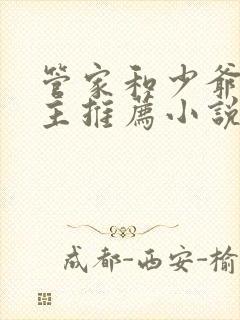 管家和少爺
主推薦小說
成都-西安-榆